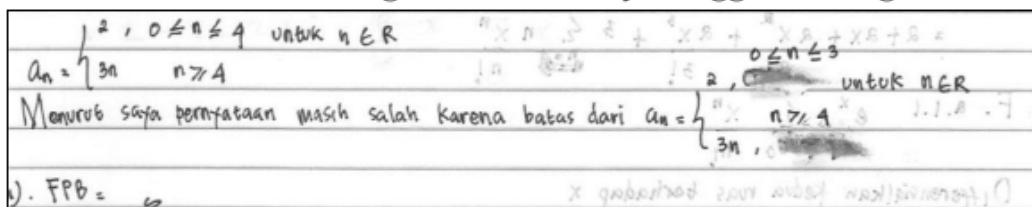 aₙ = { 2 , 0 ≤ n ≤ 4 untuk n ∈ R
3n n ≥ 4
Menurut saya pernyataan masih salah karena batas dari aₙ = { 2 , 0 ≤ n ≤ 3 untuk n ∈ R
3n , n ≥ 4
). FPB =